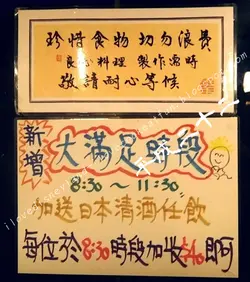 珍惜食物 切勿浪費
良心料理 製作需時
敬請耐心等候
新增
大滿足時段
8:30～11:30
加送日本清酒任飲
每位於8:30時段加收$40即可